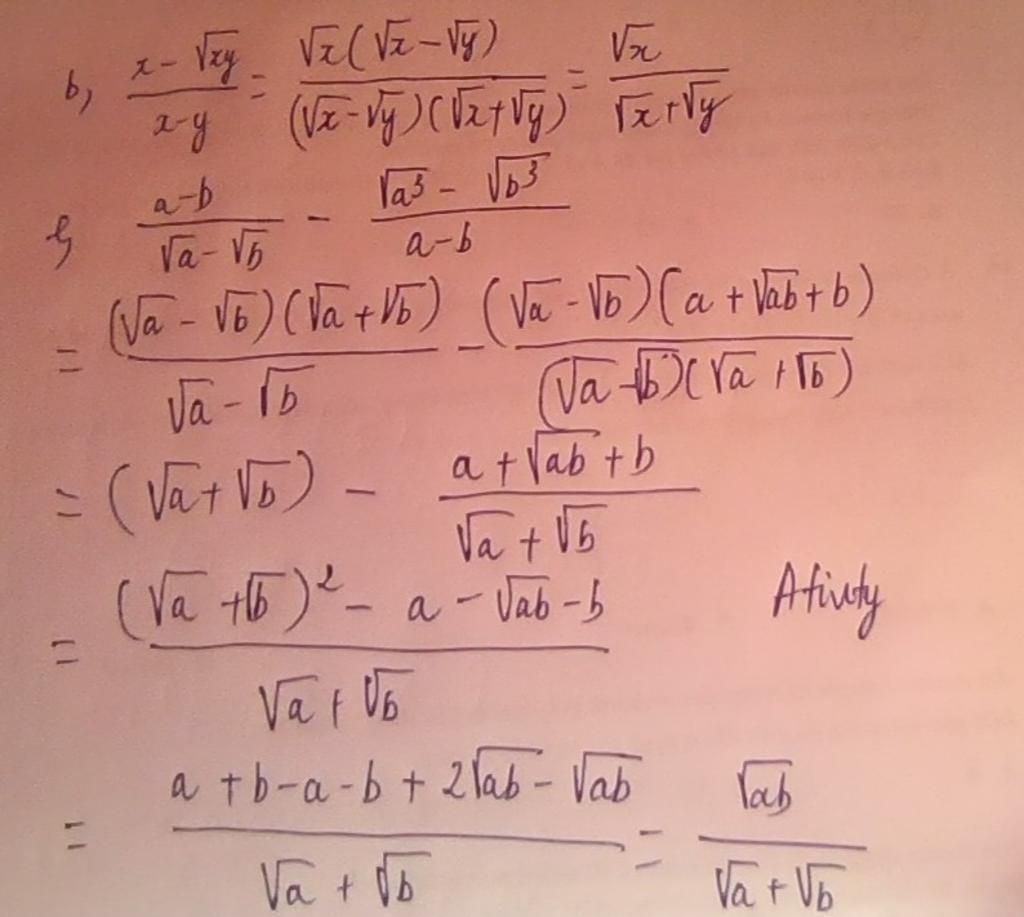 b, \frac{x-\sqrt{xy}}{x-y} = \frac{\sqrt{x}(\sqrt{x}-\sqrt{y})}{(\sqrt{x}-\sqrt{y})(\sqrt{x}+\sqrt{y})} = \frac{\sqrt{x}}{\sqrt{x}+\sqrt{y}}
\frac{a-b}{\sqrt{a}-\sqrt{b}} - \frac{\sqrt{a^3}-\sqrt{b^3}}{a-b}
= \frac{(\sqrt{a}-\sqrt{b})(\sqrt{a}+\sqrt{b})}{\sqrt{a}-\sqrt{b}} - \frac{(\sqrt{a}-\sqrt{b})(a+\sqrt{ab}+b)}{(\sqrt{a}-\sqrt{b})(\sqrt{a}+\sqrt{b})}
= (\sqrt{a}+\sqrt{b}) - \frac{a+\sqrt{ab}+b}{\sqrt{a}+\sqrt{b}}
= \frac{(\sqrt{a}+\sqrt{b})^2-a-\sqrt{ab}-b}{\sqrt{a}+\sqrt{b}}
= \frac{a+b-a-b+2\sqrt{ab}-\sqrt{ab}}{\sqrt{a}+\sqrt{b}} = \frac{\sqrt{ab}}{\sqrt{a}+\sqrt{b}}